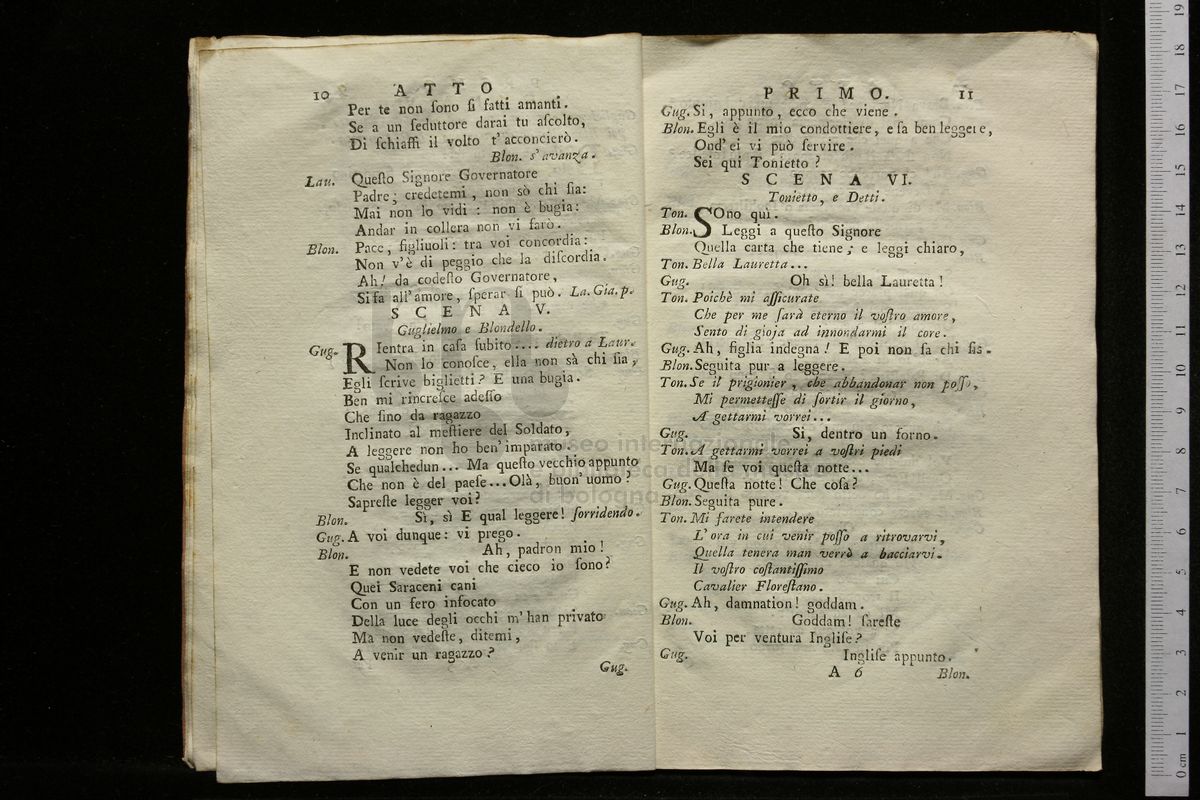 10 ATTO
Per te non ſono ſi fatti amanti.
Se a un ſeduttore darai tu aſcolto,
Di ſchiaffi il volto t'acconcierò.
Blon. s'avanza.
Lau. Queſto Signore Governatore
Padre; credetemi, non sò chi ſia:
Mai non lo vidi: non è bugia:
Andar in collera non vi farò.
Blon. Pace, figliuoli: tra voi concordia:
Non v'è di peggio che la diſcordia.
Ah! da codeſto Governatore,
Si fa all'amore, ſperar ſi può. La. Gia. p.
SCENA V.
Guglielmo e Blondello.
Gug. RIentra in caſa ſubito.... dietro a Laur.
Non lo conoſce, ella non sà chi ſia,
Egli ſcrive biglietti? E una bugia.
Ben mi rincreſce adeſſo
Che ſino da ragazzo
Inclinato al meſtiere del Soldato,
A leggere non ho ben' imparato.
Se qualchedun... Ma queſto vecchio appunto
Che non è del paeſe... Olà, buon' uomo?
Sapreſte legger voi?
Blon. Sì, sì E qual leggere! ſorridendo.
Gug. A voi dunque: vi prego.
Blon. Ah, padron mio!
E non vedete voi che cieco io ſono?
Quei Saraceni cani
Con un fero infocato
Della luce degli occhi m'han privato
Ma non vedeſte, ditemi,
A venir un ragazzo?
Gug.
PRIMO. 11
Gug. Si, appunto, ecco che viene.
Blon. Egli è il mio condottiere, e ſa ben leggere,
Ond' ei vi può ſervire.
Sei qui Tonietto?
SCENA VI.
Tonietto, e Detti.
Ton. SOno quì.
Blon. Leggi a queſto Signore
Quella carta che tiene; e leggi chiaro,
Ton. Bella Lauretta...
Gug. Oh sì! bella Lauretta!
Ton. Poichè mi aſſicurate
Che per me ſarà eterno il voſtro amore,
Sento di gioja ad innondarmi il core.
Gug. Ah, figlia indegna! E poi non ſa chi ſis.
Blon. Seguita pur a leggere.
Ton. Se il prigionier, che abbandonar non poſſo,
Mi permetteſſe di ſortir il giorno,
A gettarmi vorrei...
Gug. Si, dentro un forno.
Ton. A gettarmi vorrei a voſtri piedi
Ma ſe voi queſta notte...
Gug. Queſta notte! Che coſa?
Blon. Seguita pure.
Ton. Mi farete intendere
L'ora in cui venir poſſo a ritrovarvi,
Quella tenera man verrò a bacciarvi.
Il voſtro coſtantiſſimo
Cavalier Floreſtano.
Gug. Ah, damnation! goddam.
Blon. Goddam! ſareſte
Voi per ventura Ingliſe?
Gug. Ingliſe appunto.
A 6 Blon.
museo internazionale
e biblioteca della musica
di bologna
0 cm 1 2 3 4 5 6 7 8 9 10 11 12 13 14 15 16 17 18 19